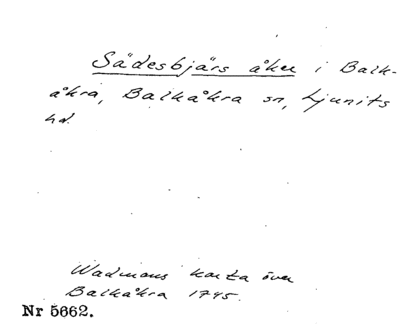 Sädesbjärs åker i Balk-
åkra, Balkåkra sn, Ljunits
hd.
Wadmans karta över
Balkåkra 1745.
Nr 5662.